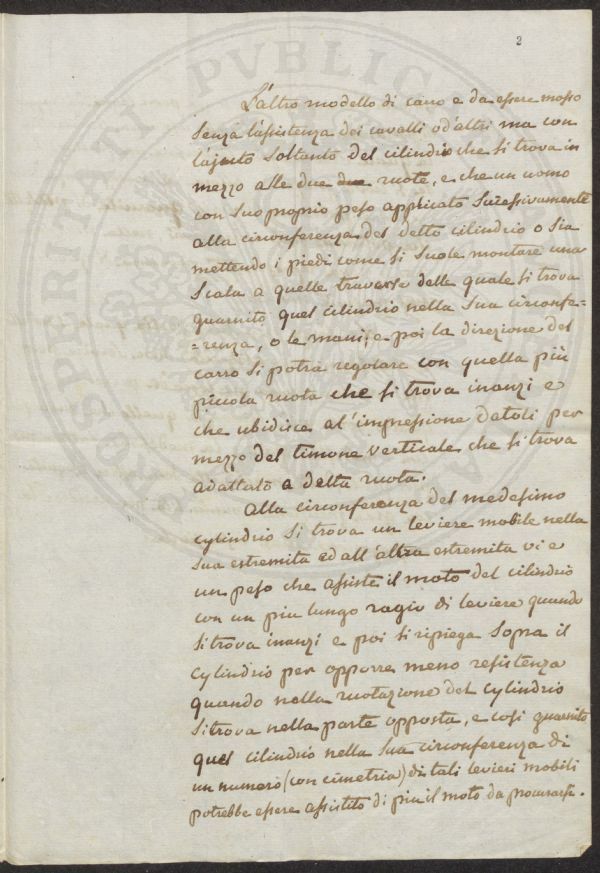 2
L'altro modello di carro e da essere mosso
senza l'assistenza dei cavalli od'altri ma con
l'ajuto soltanto del cilindro che si trova in
mezzo alle due due ruote, e che un uomo
con suo proprio peso applicato successivamente
alla circonferenza del detto cilindro o sia
mettendo i piedi come si suole montare una
scala a quelle traverse delle quale si trova
guarnito quel cilindro nella sua circonfe-
-renza, o le mani; e poi la direzione del
carro si potrà regolare con quella più
piccola ruota che si trova inanzi e
che ubidisce al'impressione datoli per
mezzo del timone verticale che si trova
adattato a detta ruota.
Alla circonferenza del medesimo
cylindrio si trova un leviere mobile nella
sua estremita ed all'altra estremita vi e
un peso che assiste il moto del cilindrio
con un piu lungo ragio di leviere quando
si trova inanzi e poi si ripiega sopra il
cylindrio per opporre meno resistenza
quando nella ruotazione del cylindrio
si trova nella parte opposta, e cosi guarnito
quel cilindrio nella sua circonferenza di
un numero (con cimetria) di tali levieri mobili
potrebbe essere assistito di piu il moto da procurarsi.
PROSPERITATI PVBLICAE